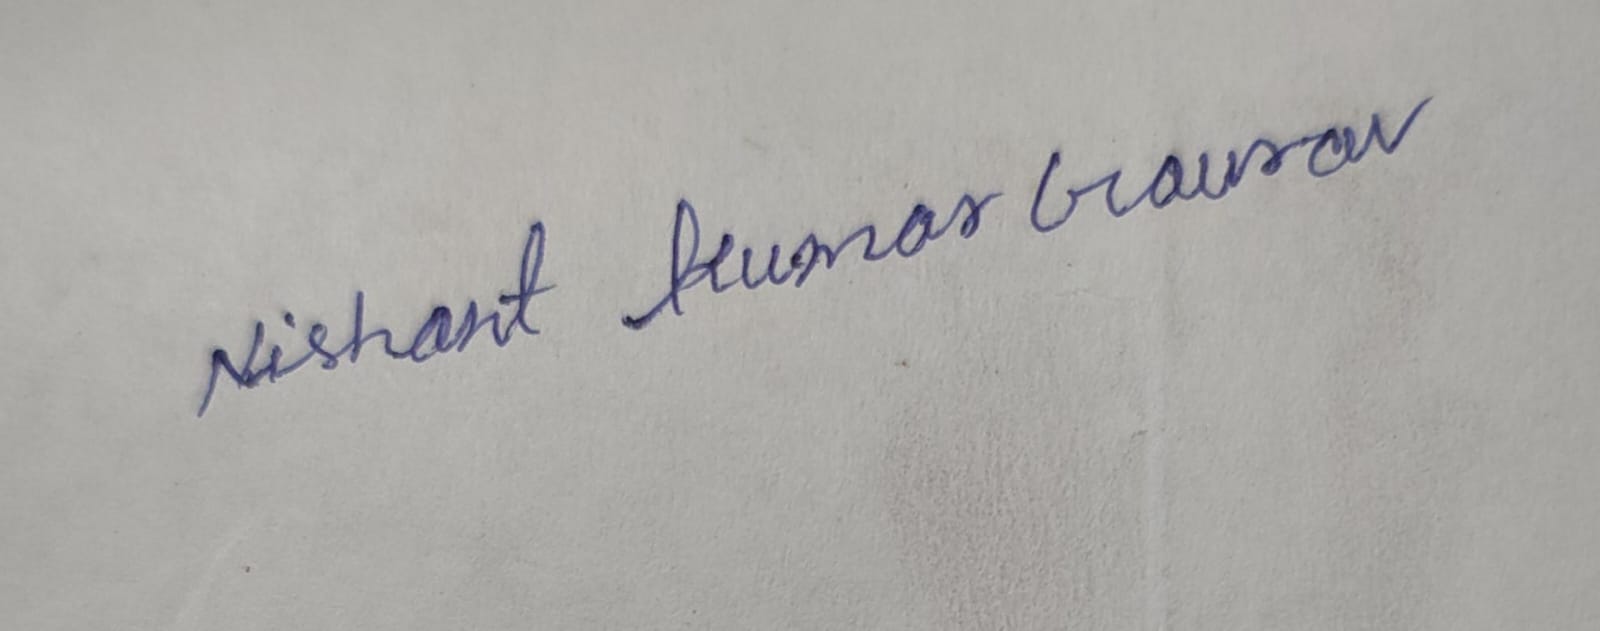 Nishant Kumar Gaurav